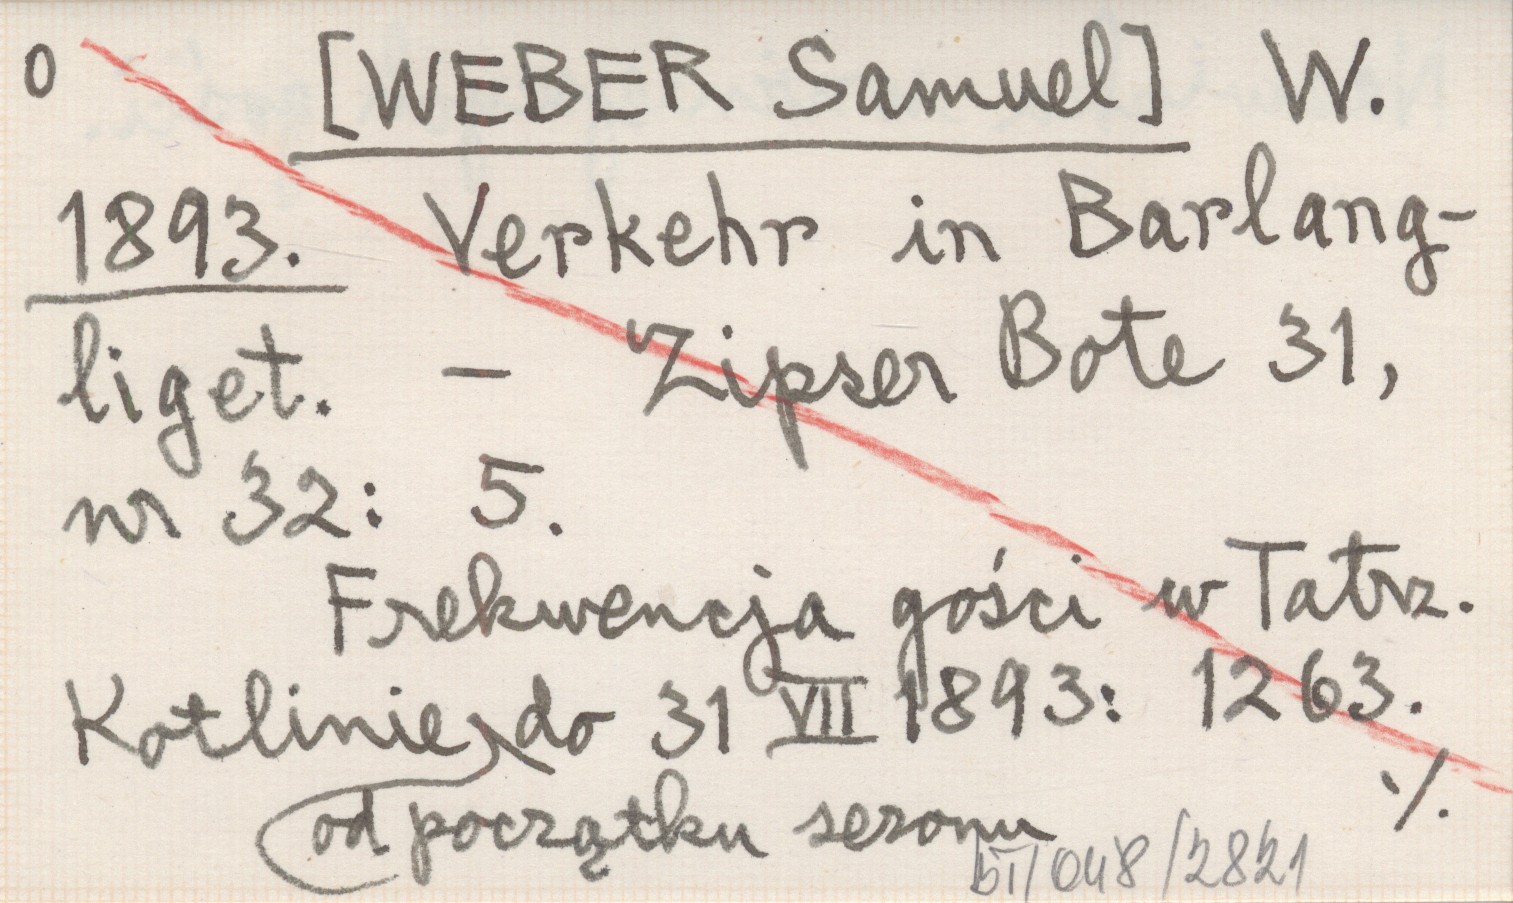 0 [WEBER Samuel] W.
1893. Verkehr in Barlang-
liget. – Zipser Bote 31,
nr 32: 5.
Frekwencja gości w Tatrz.
Kotlinie, do 31 VII 1893: 1263.
·/.
od początku sezonu
bT/048/2821